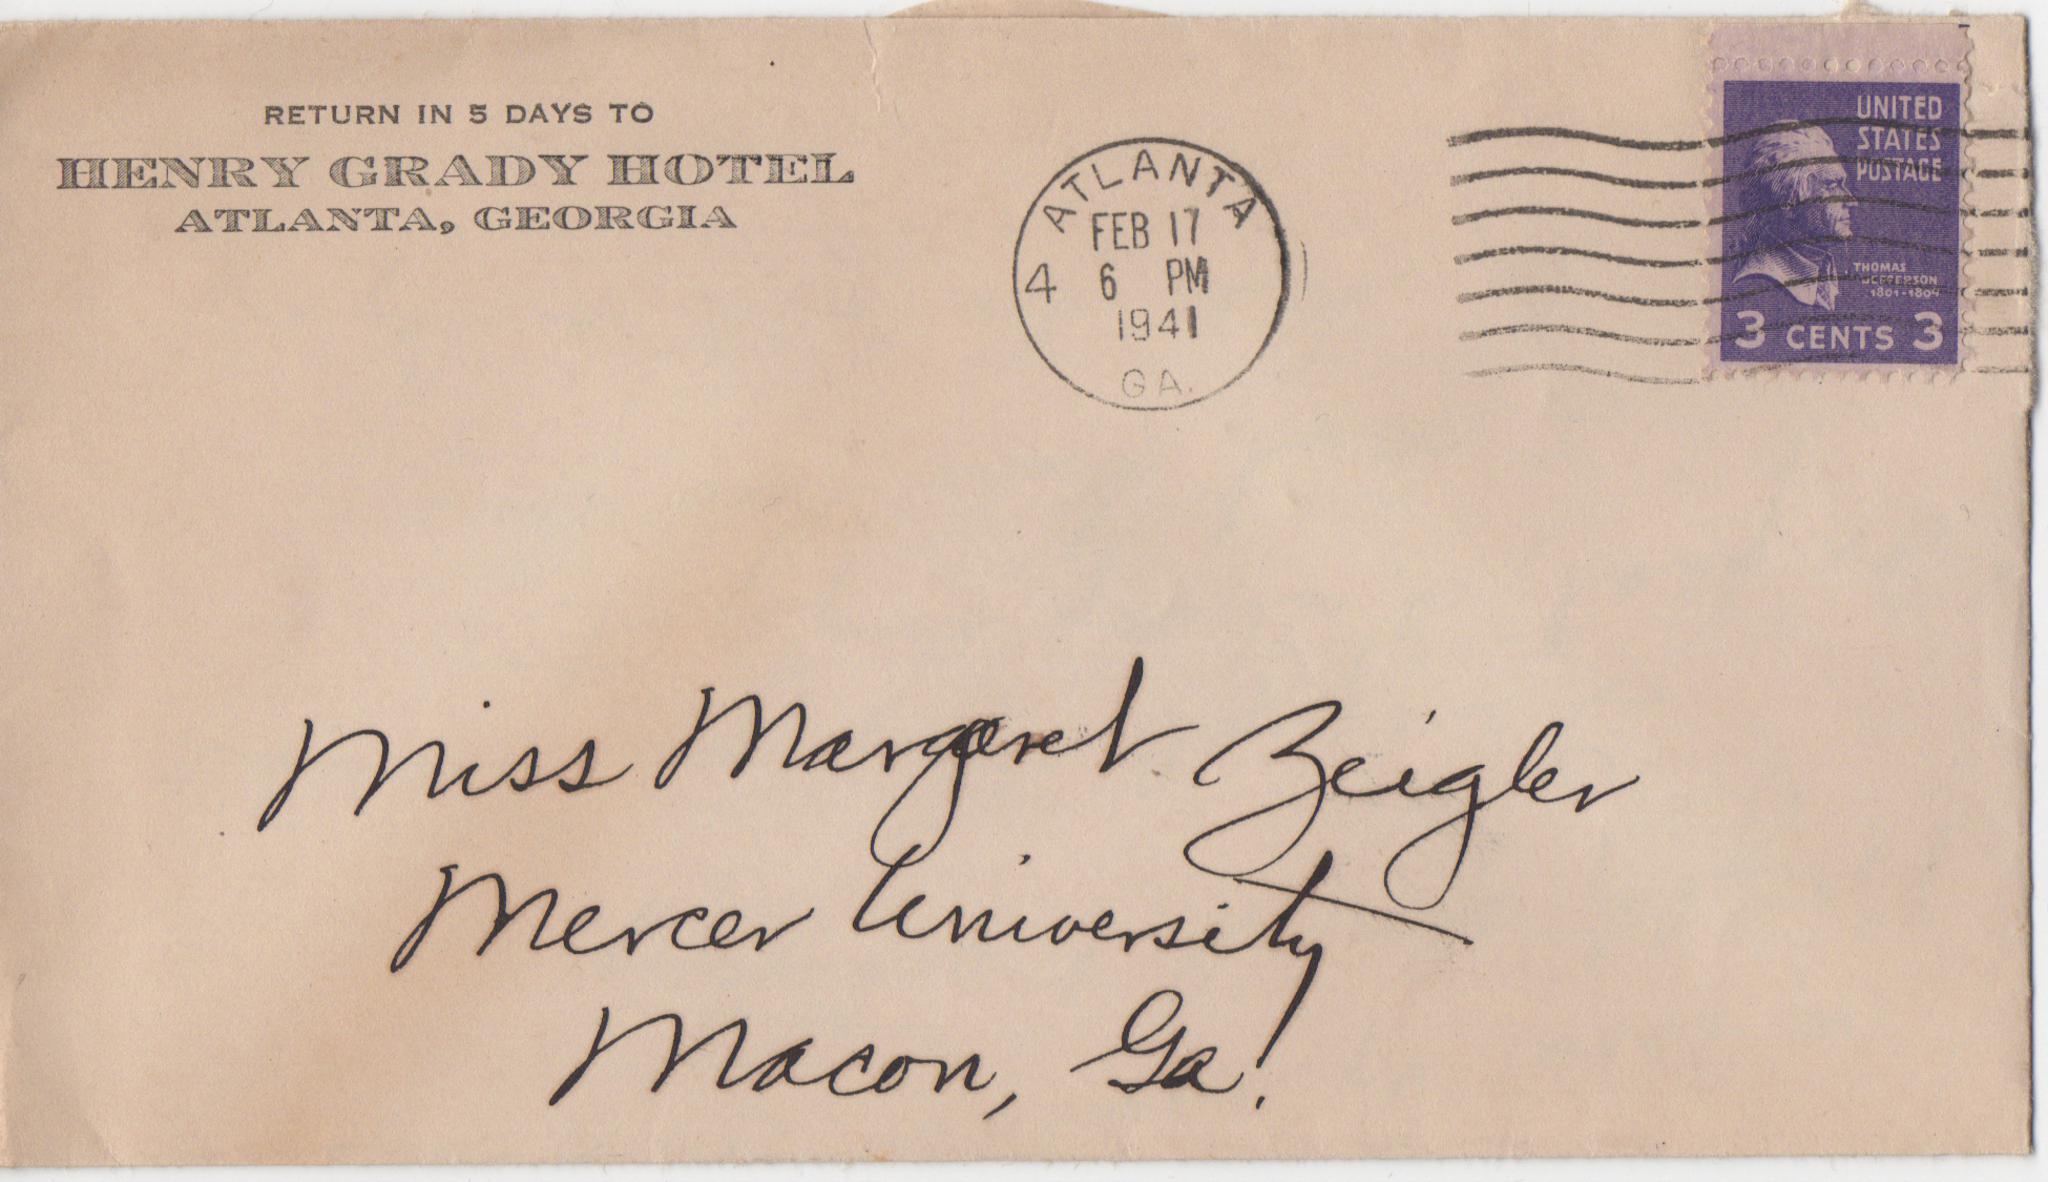 RETURN IN 5 DAYS TO
HENRY GRADY HOTEL
ATLANTA, GEORGIA
ATLANTA
FEB 17
4 6 PM
1941
GA.
UNITED
STATES
POSTAGE
THOMAS
JEFFERSON
1801-1809
3 CENTS 3
Miss Margaret Zeigler
Mercer University
Macon, Ga.